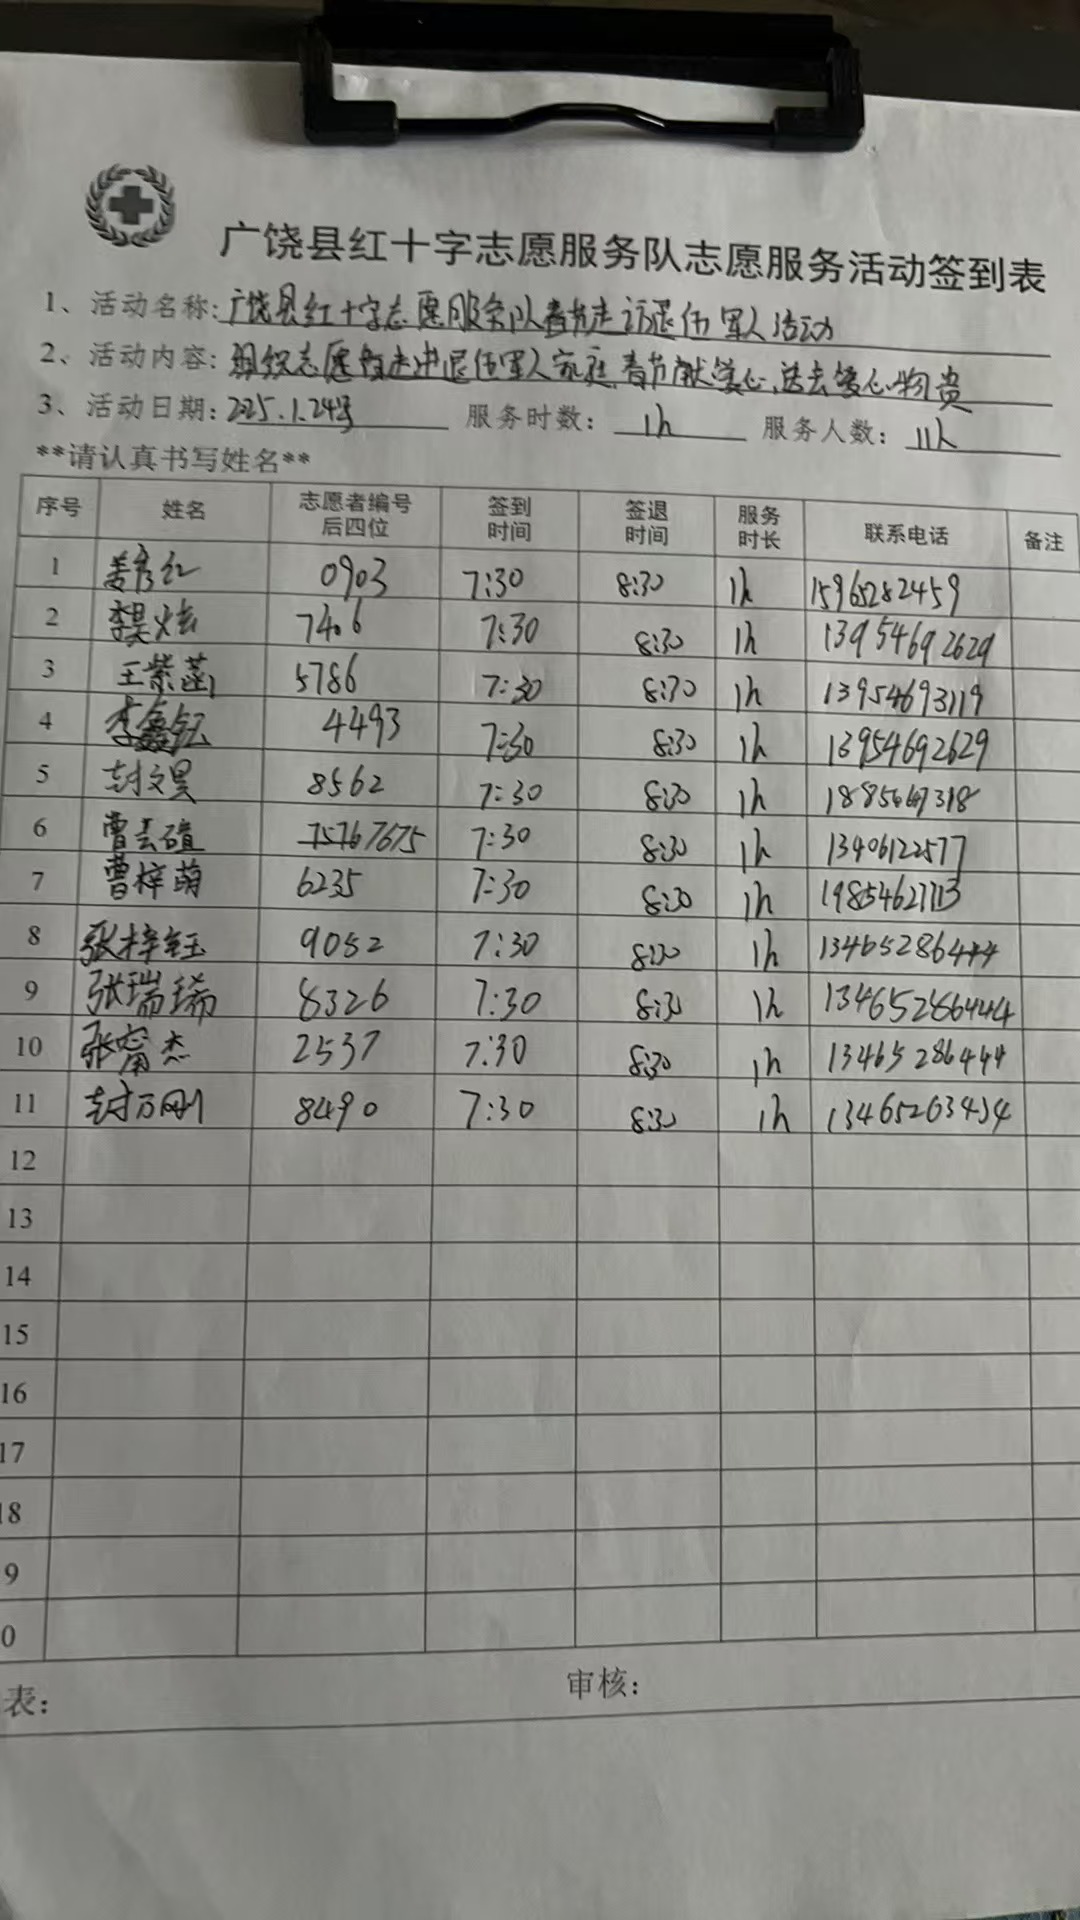 广饶县红十字志愿服务队志愿服务活动签到表
1、活动名称:广饶县红十字志愿服务队春节走访退伍军人活动
2、活动内容:组织志愿者走进退伍军人家庭,春节献爱心,送去爱心物资
3、活动日期:2025.1.24号 服务时数:1h 服务人数:11人
**请认真书写姓名**
序号 姓名 志愿者编号后四位 签到时间 签退时间 服务时长 联系电话 备注
1 姜彦红 0903 7:30 8:30 1h 15965282459
2 李昊炫 7406 7:30 8:30 1h 13954692629
3 王紫菡 5786 7:30 8:30 1h 13954693119
4 李鑫钰 4493 7:30 8:30 1h 13954692629
5 封文昊 8562 7:30 8:30 1h
6 曹 7675 7:30 8:30 1h 13406122577
7 曹梓萌 6235 7:30 8:30 1h 19854627113
8 张梓钰 9052 7:30 8:30 1h 13465286444
9 张瑞瑞 8326 7:30 8:30 1h 13465286444
10 张甯杰 2537 7:30 8:30 1h 13465286444
11 封万刚 8490 7:30 8:30 1h 13465263434
12
13
14
15
16
17
18
9
0
表: 审核: